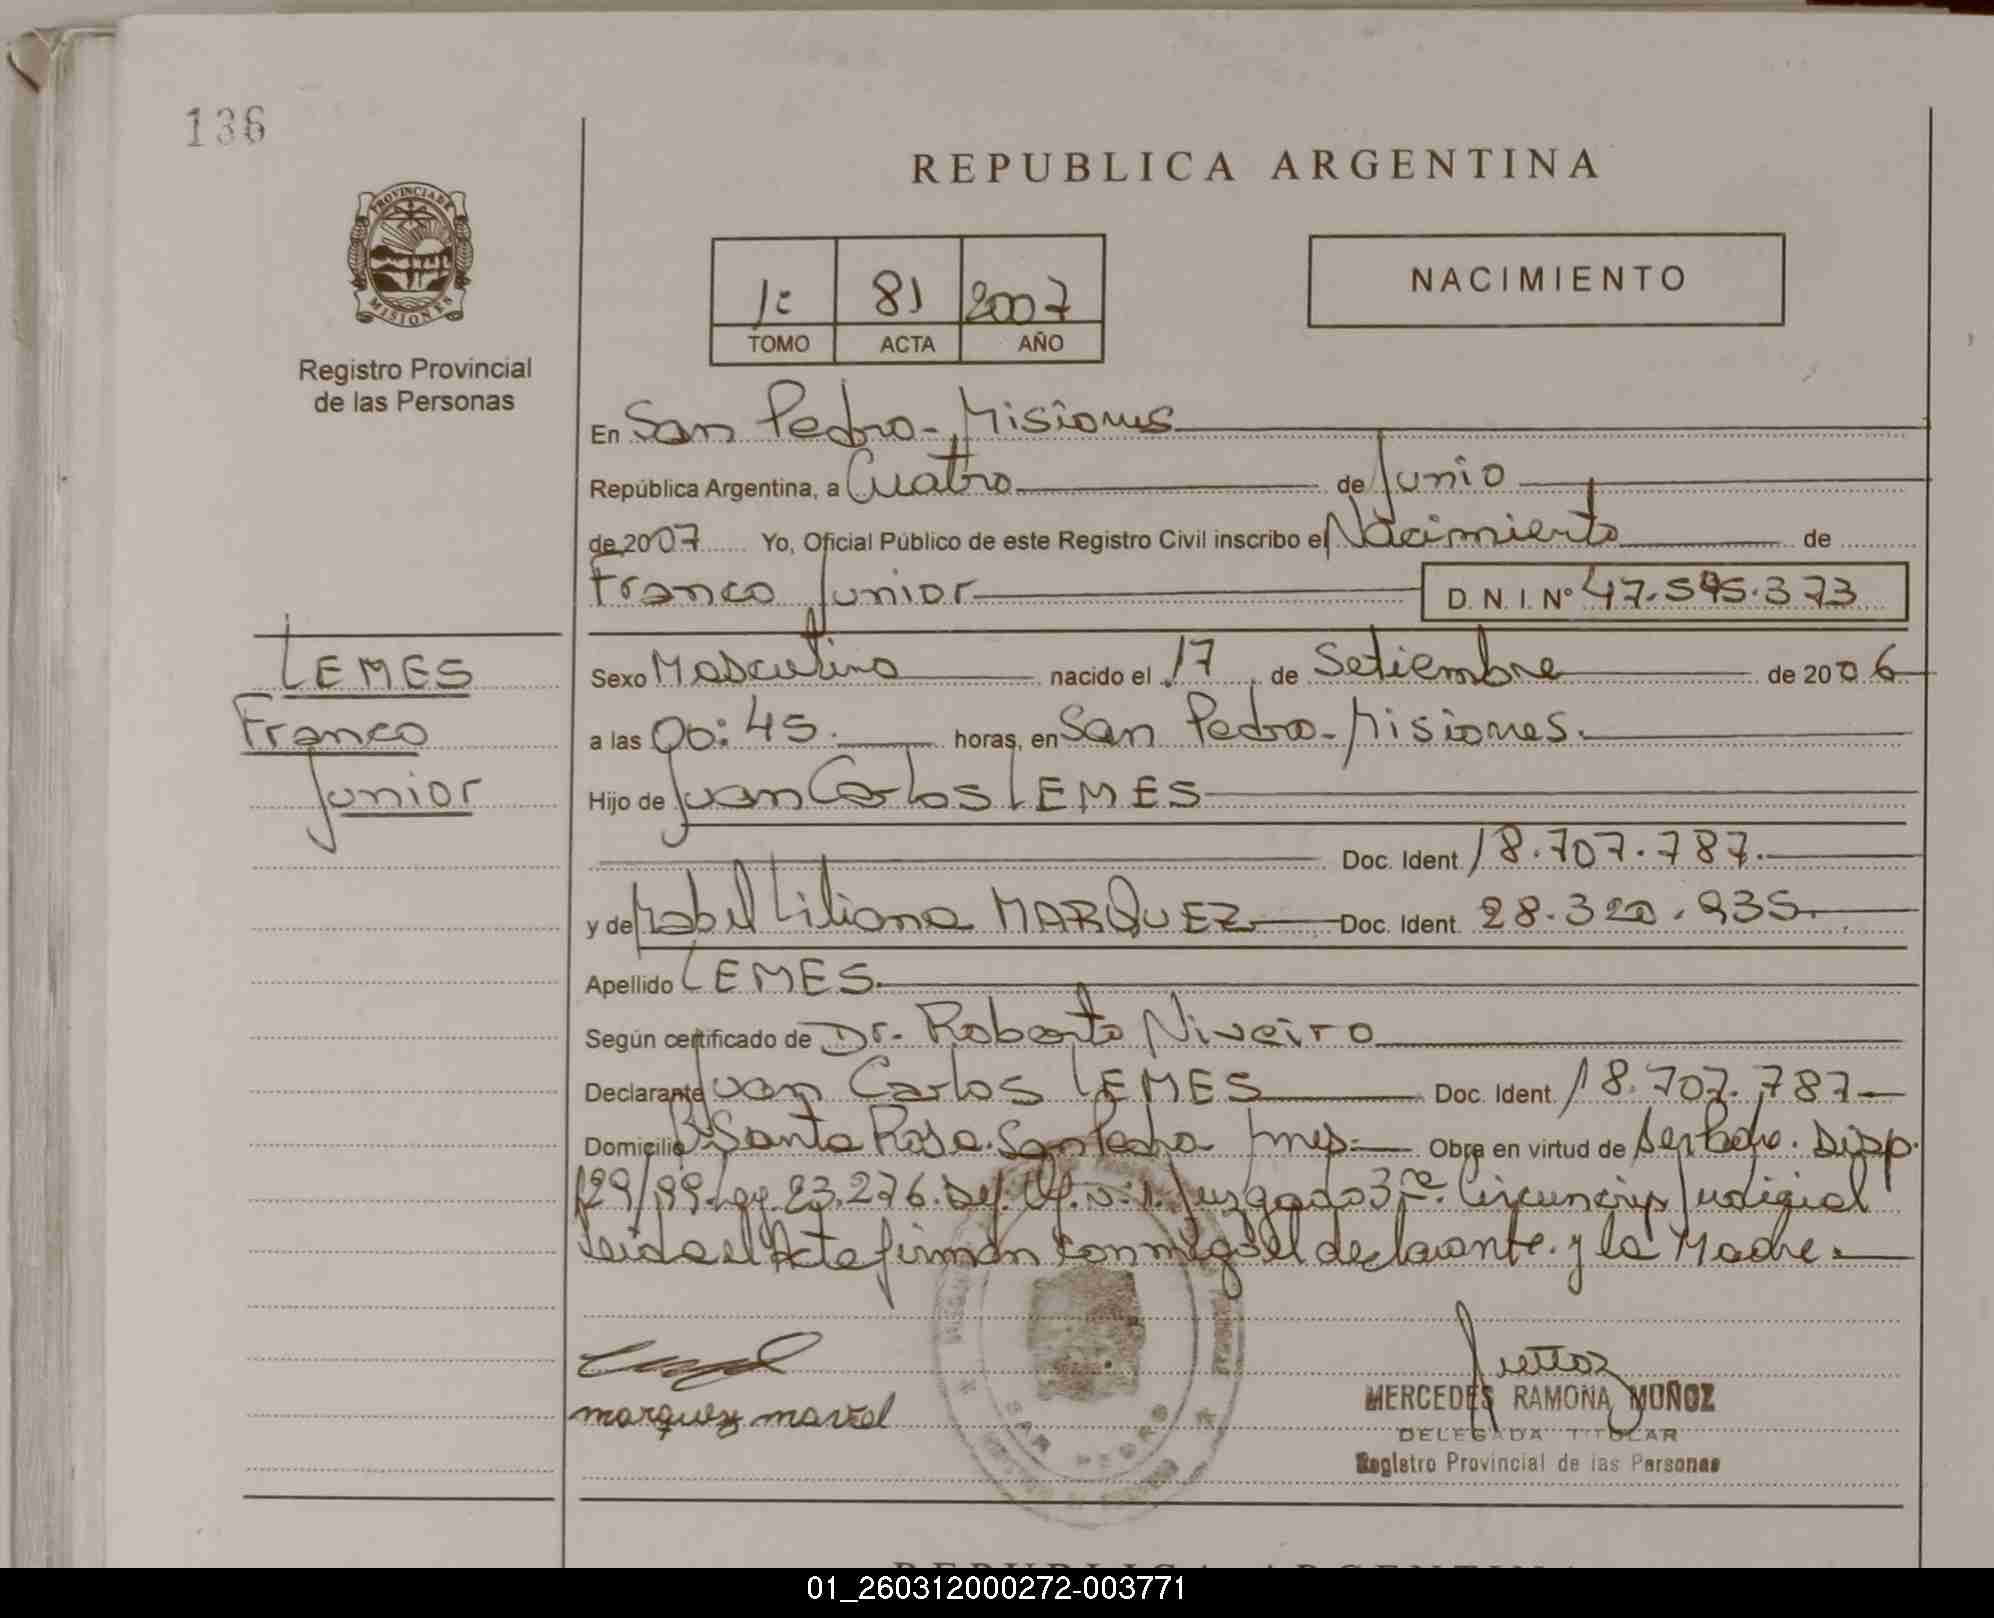 136
REPUBLICA ARGENTINA
PROVINCIA DE
MISIONES
Registro Provincial
de las Personas
1º 81 2007
TOMO ACTA AÑO
NACIMIENTO
En San Pedro - Misiones
República Argentina, a Cuatro de Junio
de 2007 Yo, Oficial Público de este Registro Civil inscribo el Nacimiento de
Franco Junior D. N. I. Nº 47.545.373
LEMES
Franco
Junior
Sexo Masculino nacido el 17 de Setiembre de 2006
a las 00:45. horas, en San Pedro - Misiones.
Hijo de Juan Carlos LEMES
Doc. Ident. 18.707.787.
y de Mabel Liliana MARQUEZ Doc. Ident. 28.320.935.
Apellido LEMES.
Según certificado de Dr. Roberto Niveiro
Declarante Juan Carlos LEMES Doc. Ident. 18.707.787
Domicilio Bº Santa Rosa. San Pedro Mnes. Obra en virtud de ser Padre. Disp.
129/99. Ley. 23.276. Juzgado 3ra. Circunscrip Judicial
Leida el Acta firman conmigo el declarante. y la Madre.
marquez mavel
SAN PEDRO
MERCEDES RAMONA MUÑOZ
DELEGADA TITULAR
Registro Provincial de las Personas
REPUBLICA ARGENTINA
01_260312000272-003771